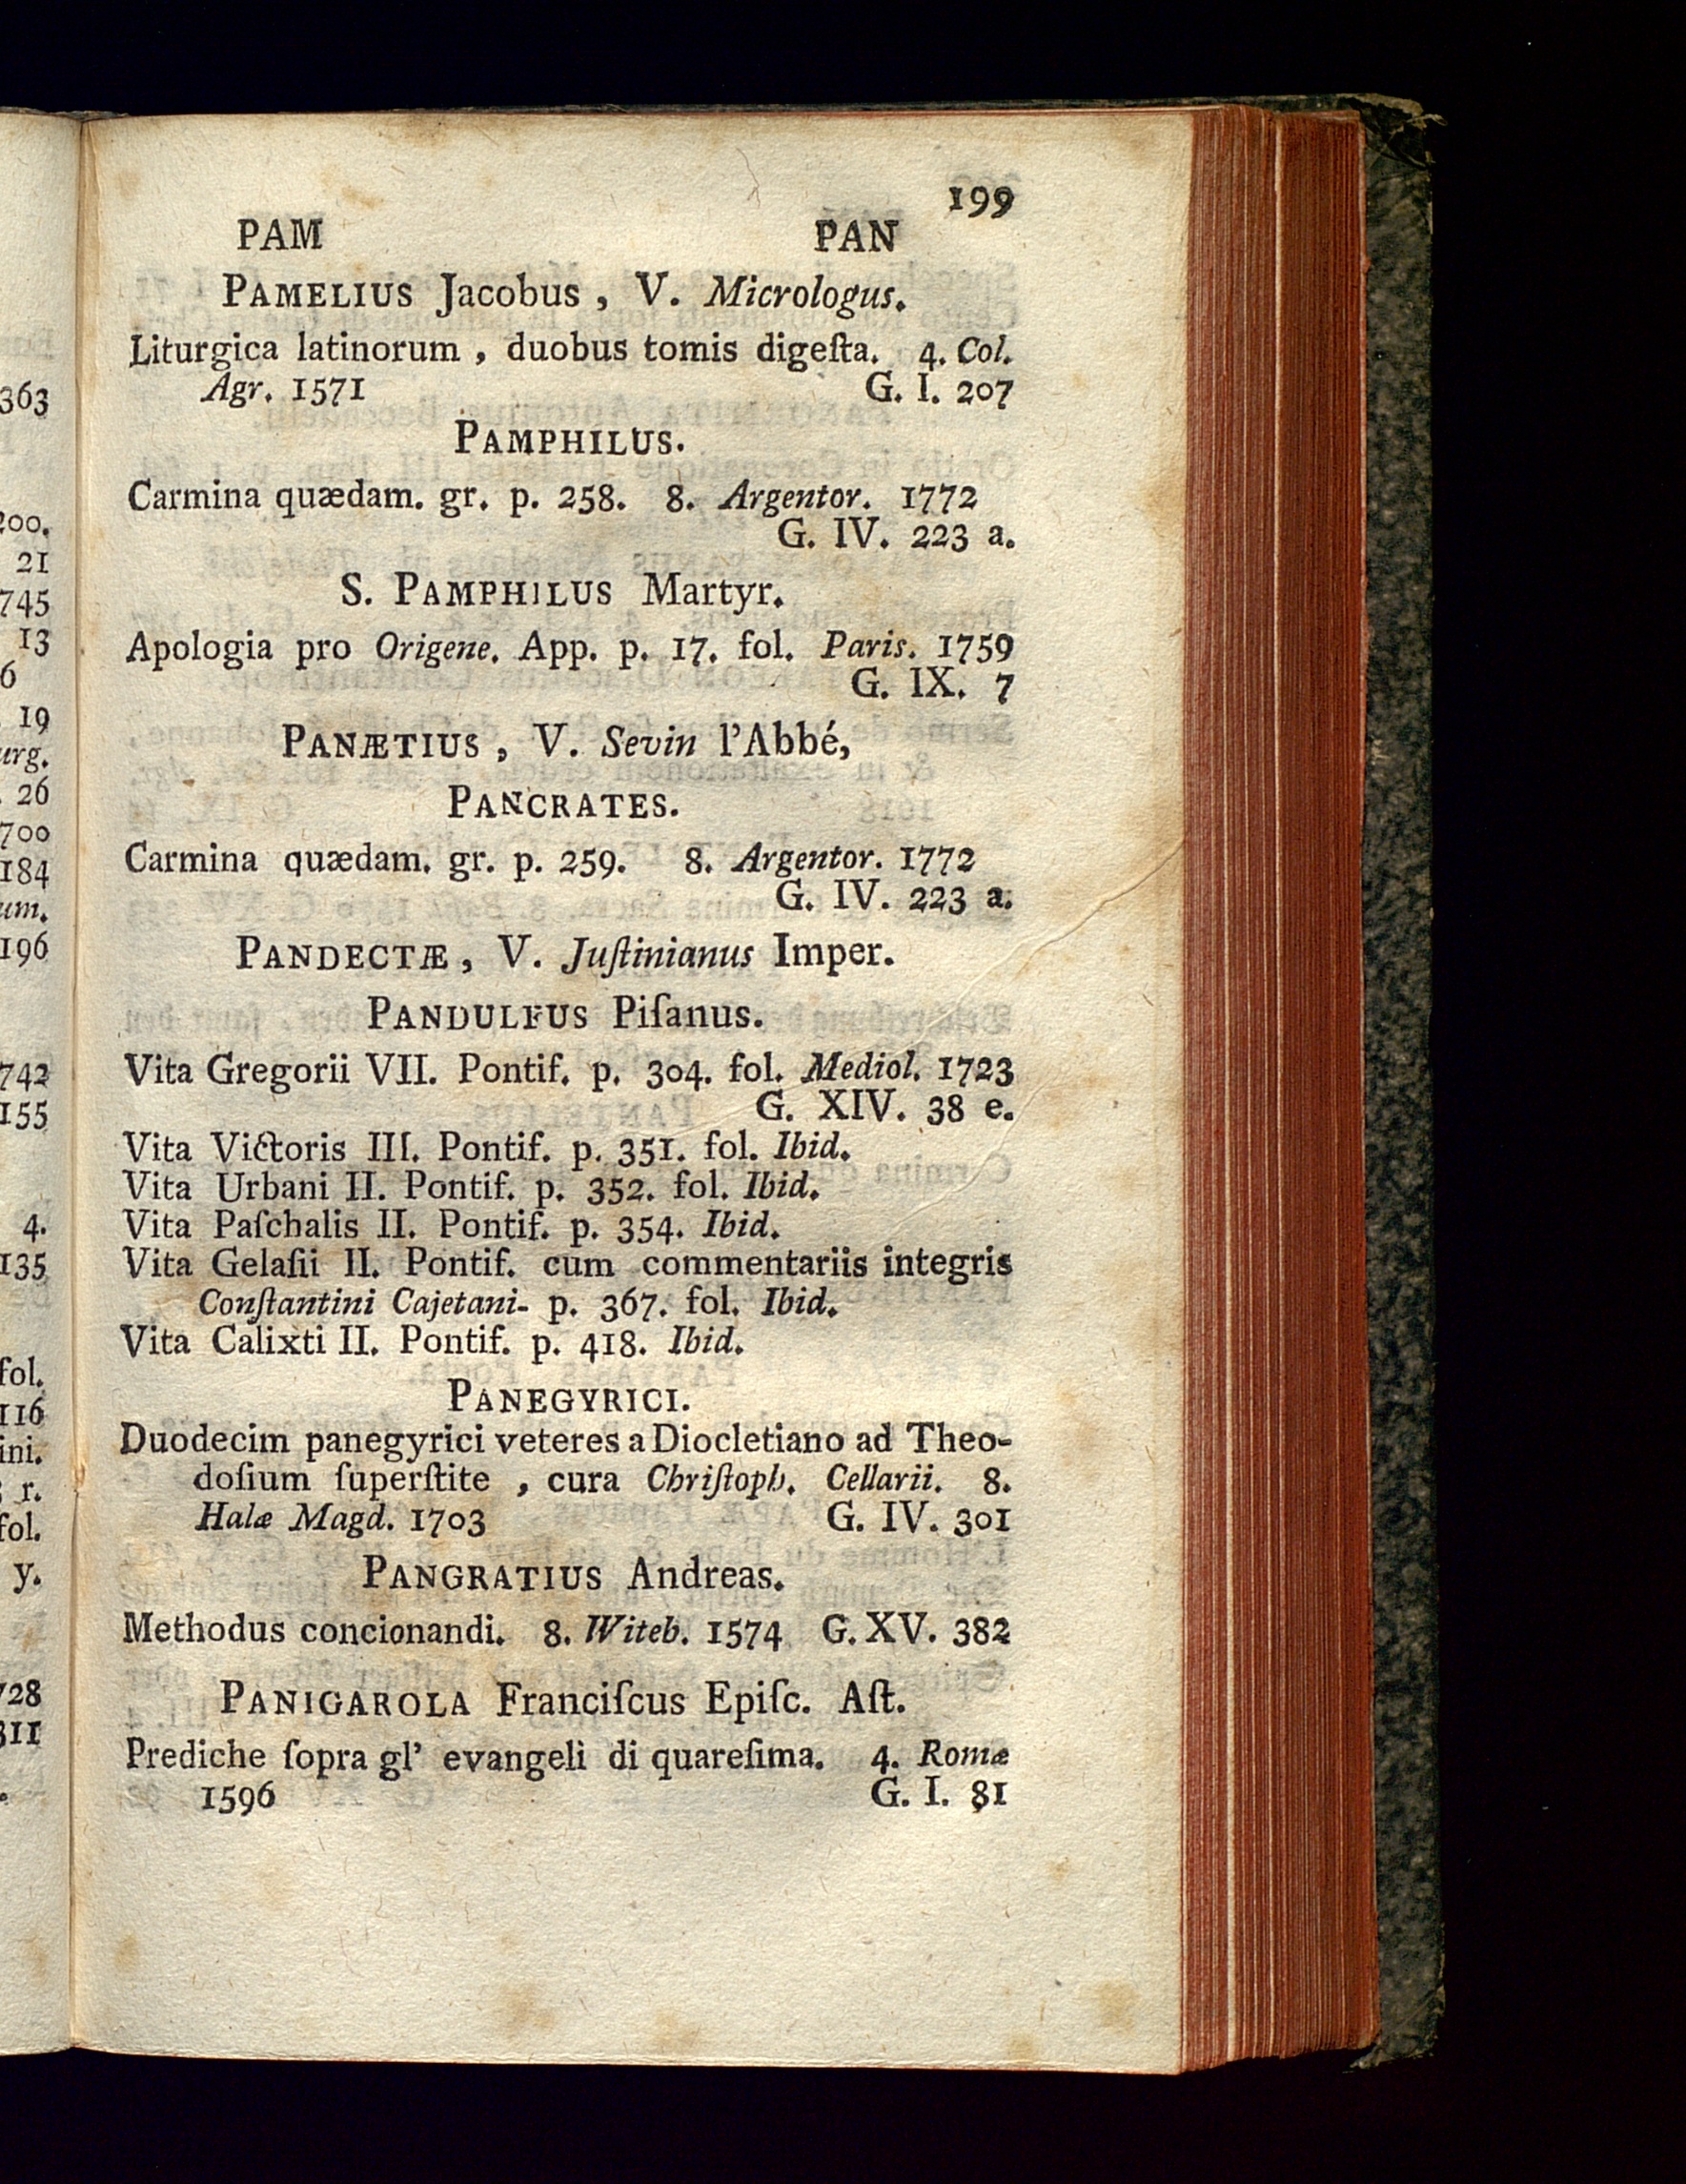 199
PAM PAN
PAMELIUS Jacobus, V. Micrologus.
Liturgica latinorum, duobus tomis digeſta. 4. Col.
Agr. 1571 G. I. 207
PAMPHILUS.
Carmina quædam. gr. p. 258. 8. Argentor. 1772
G. IV. 223 a.
S. PAMPHILUS Martyr.
Apologia pro Origene. App. p. 17. fol. Paris. 1759
G. IX. 7
PANÆTIUS, V. Sevin l'Abbé,
PANCRATES.
Carmina quædam. gr. p. 259. 8. Argentor. 1772
G. IV. 223 a.
PANDECTÆ, V. Juſtinianus Imper.
PANDULFUS Piſanus.
Vita Gregorii VII. Pontif. p. 304. fol. Mediol. 1723
G. XIV. 38 e.
Vita Victoris III. Pontif. p. 351. fol. Ibid.
Vita Urbani II. Pontif. p. 352. fol. Ibid.
Vita Paſchalis II. Pontif. p. 354. Ibid.
Vita Gelaſii II. Pontif. cum commentariis integris
Conſtantini Cajetani- p. 367. fol. Ibid.
Vita Calixti II. Pontif. p. 418. Ibid.
PANEGYRICI.
Duodecim panegyrici veteres a Diocletiano ad Theo-
doſium ſuperſtite, cura Chriſtoph. Cellarii. 8.
Halæ Magd. 1703 G. IV. 301
PANGRATIUS Andreas.
Methodus concionandi. 8. Witeb. 1574 G. XV. 382
PANIGAROLA Franciſcus Epiſc. Aſt.
Prediche ſopra gl' evangeli di quareſima. 4. Romæ
1596 G. I. 81